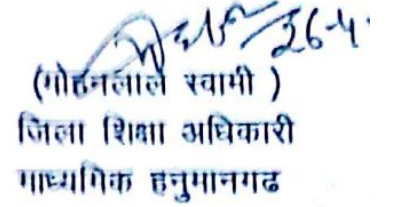 26-4
(मोहनलाल स्वामी )
जिला शिक्षा अधिकारी
माध्यमिक हनुमानगढ